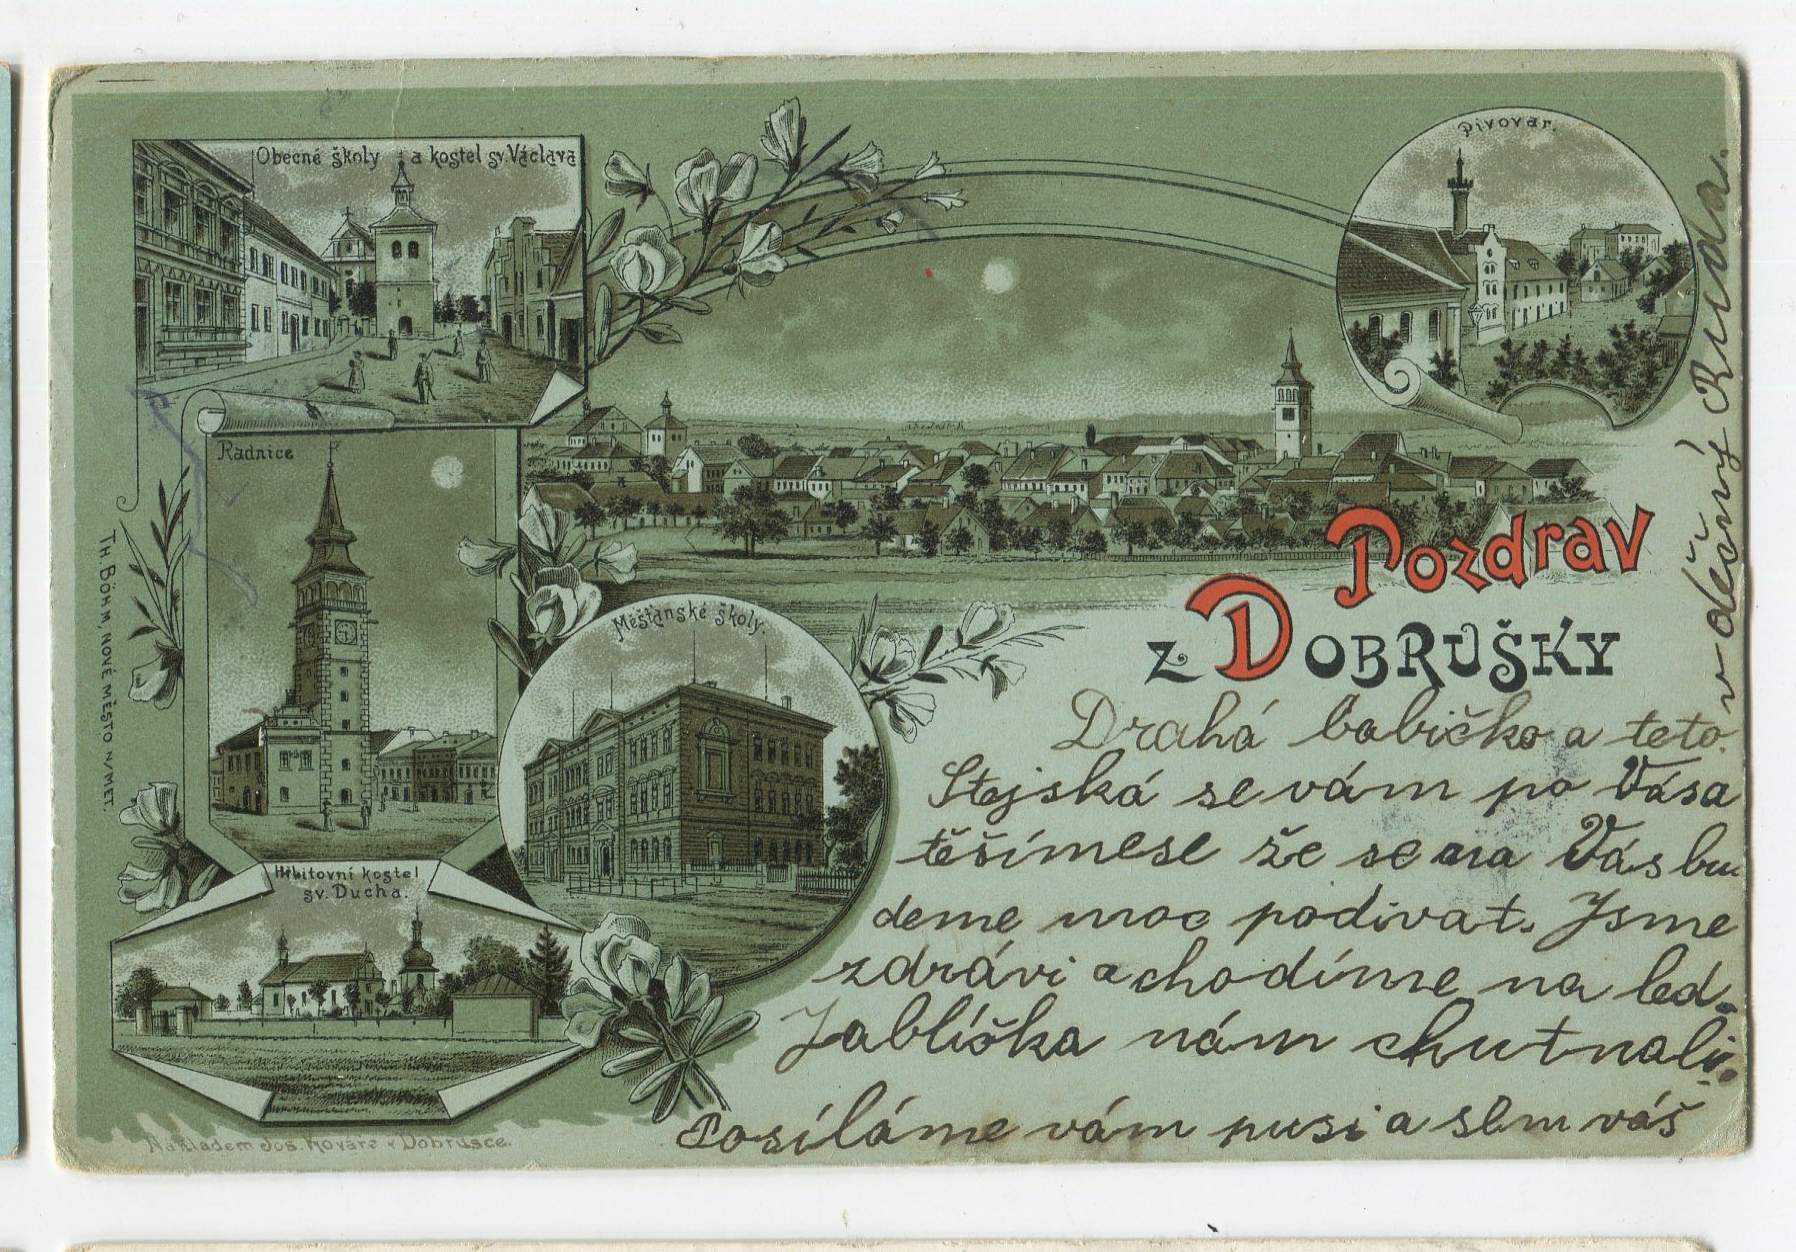 Obecné školy a kostel sv. Václava
Pivovar.
Radnice
Měšťanské školy.
Hřbitovní kostel
sv. Ducha.
Pozdrav
z DOBRUŠKY
Drahá babičko a teto.
Stejská se vám po Vása
těšímese že se na Vás bu
deme moc podivat. Jsme
zdrávi a chodíme na led.
Jablíčka nám chutnali.
Posíláme vám pusi a váš
vděčný Ruda.
TH. BÖHM, NOVÉ MĚSTO N/MET.
Nakladem Jos. Kováře v Dobrušce.